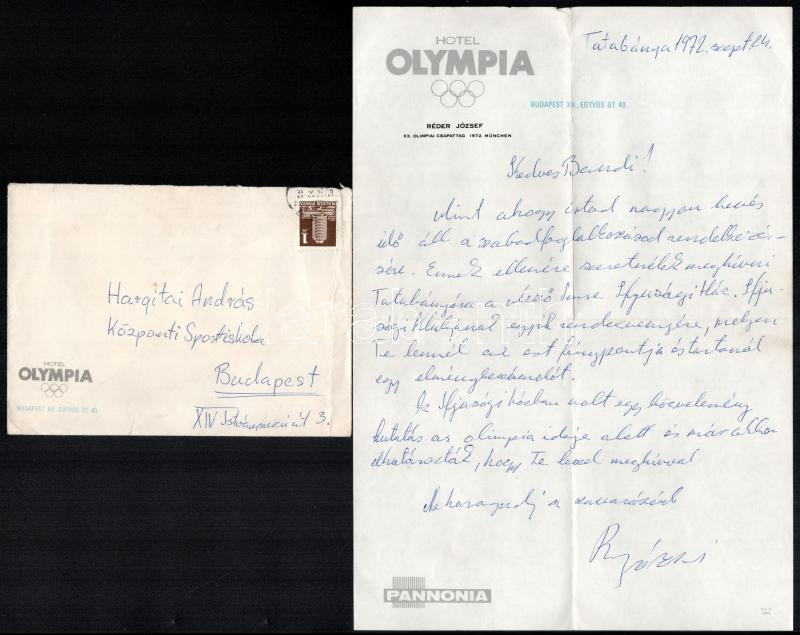 HOTEL
OLYMPIA
BUDAPEST XII, EÖTVÖS ÚT 40.
RÉDER JÓZSEF
XX. OLIMPIAI CSAPATTAG 1972. MÜNCHEN
Tatabánya 1972. szept. 24.
Kedves Bandi!
Mint ahogy írtad nagyon kevés
idő áll a szabadfoglalkozásod rendelkezé-
sére. Ennek ellenére szeretnélek meghívni
Tatabányára a Vécső Imre Ifjusági Ház. Ifju-
sági Klubjának egyik rendezvényére, melyen
Te lennél az est fénypontja és tartanál
egy élménybeszámolót.
Az Ifjusági házban volt egy közvélemény
kutatás az olimpia ideje alatt és már akkor
elhatározták, hogy Te leszel meghívva!
Ne haragudj a zavarásért
MAGYAR POSTA
1
Hargitai András
Központi Sportiskola
Budapest
XIV Istvánmezei út 3.
HOTEL
OLYMPIA
BUDAPEST XII. EÖTVÖS ÚT 40.
PANNONIA